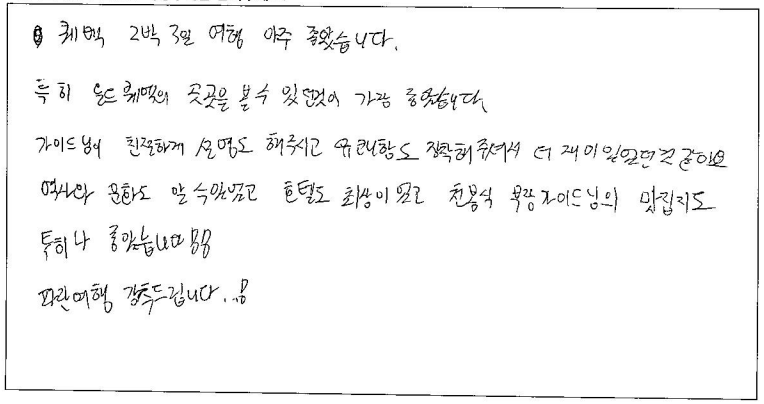 퀘벡 2박 3일 여행 아주 좋았습니다.
특히 올드퀘벡의 곳곳을 볼 수 있던것이 가장 좋았습니다.
가이드님이 친절하게 설명도 해주시고 유쾌함도 장착해주셔서 더 재미있었던것 같아요
역사와 문화도 알 수 있었고 호텔도 최상이었고 천봉식 부장가이드님의 맛집지도
특히나 좋았습니다
파란여행 강추드립니다..